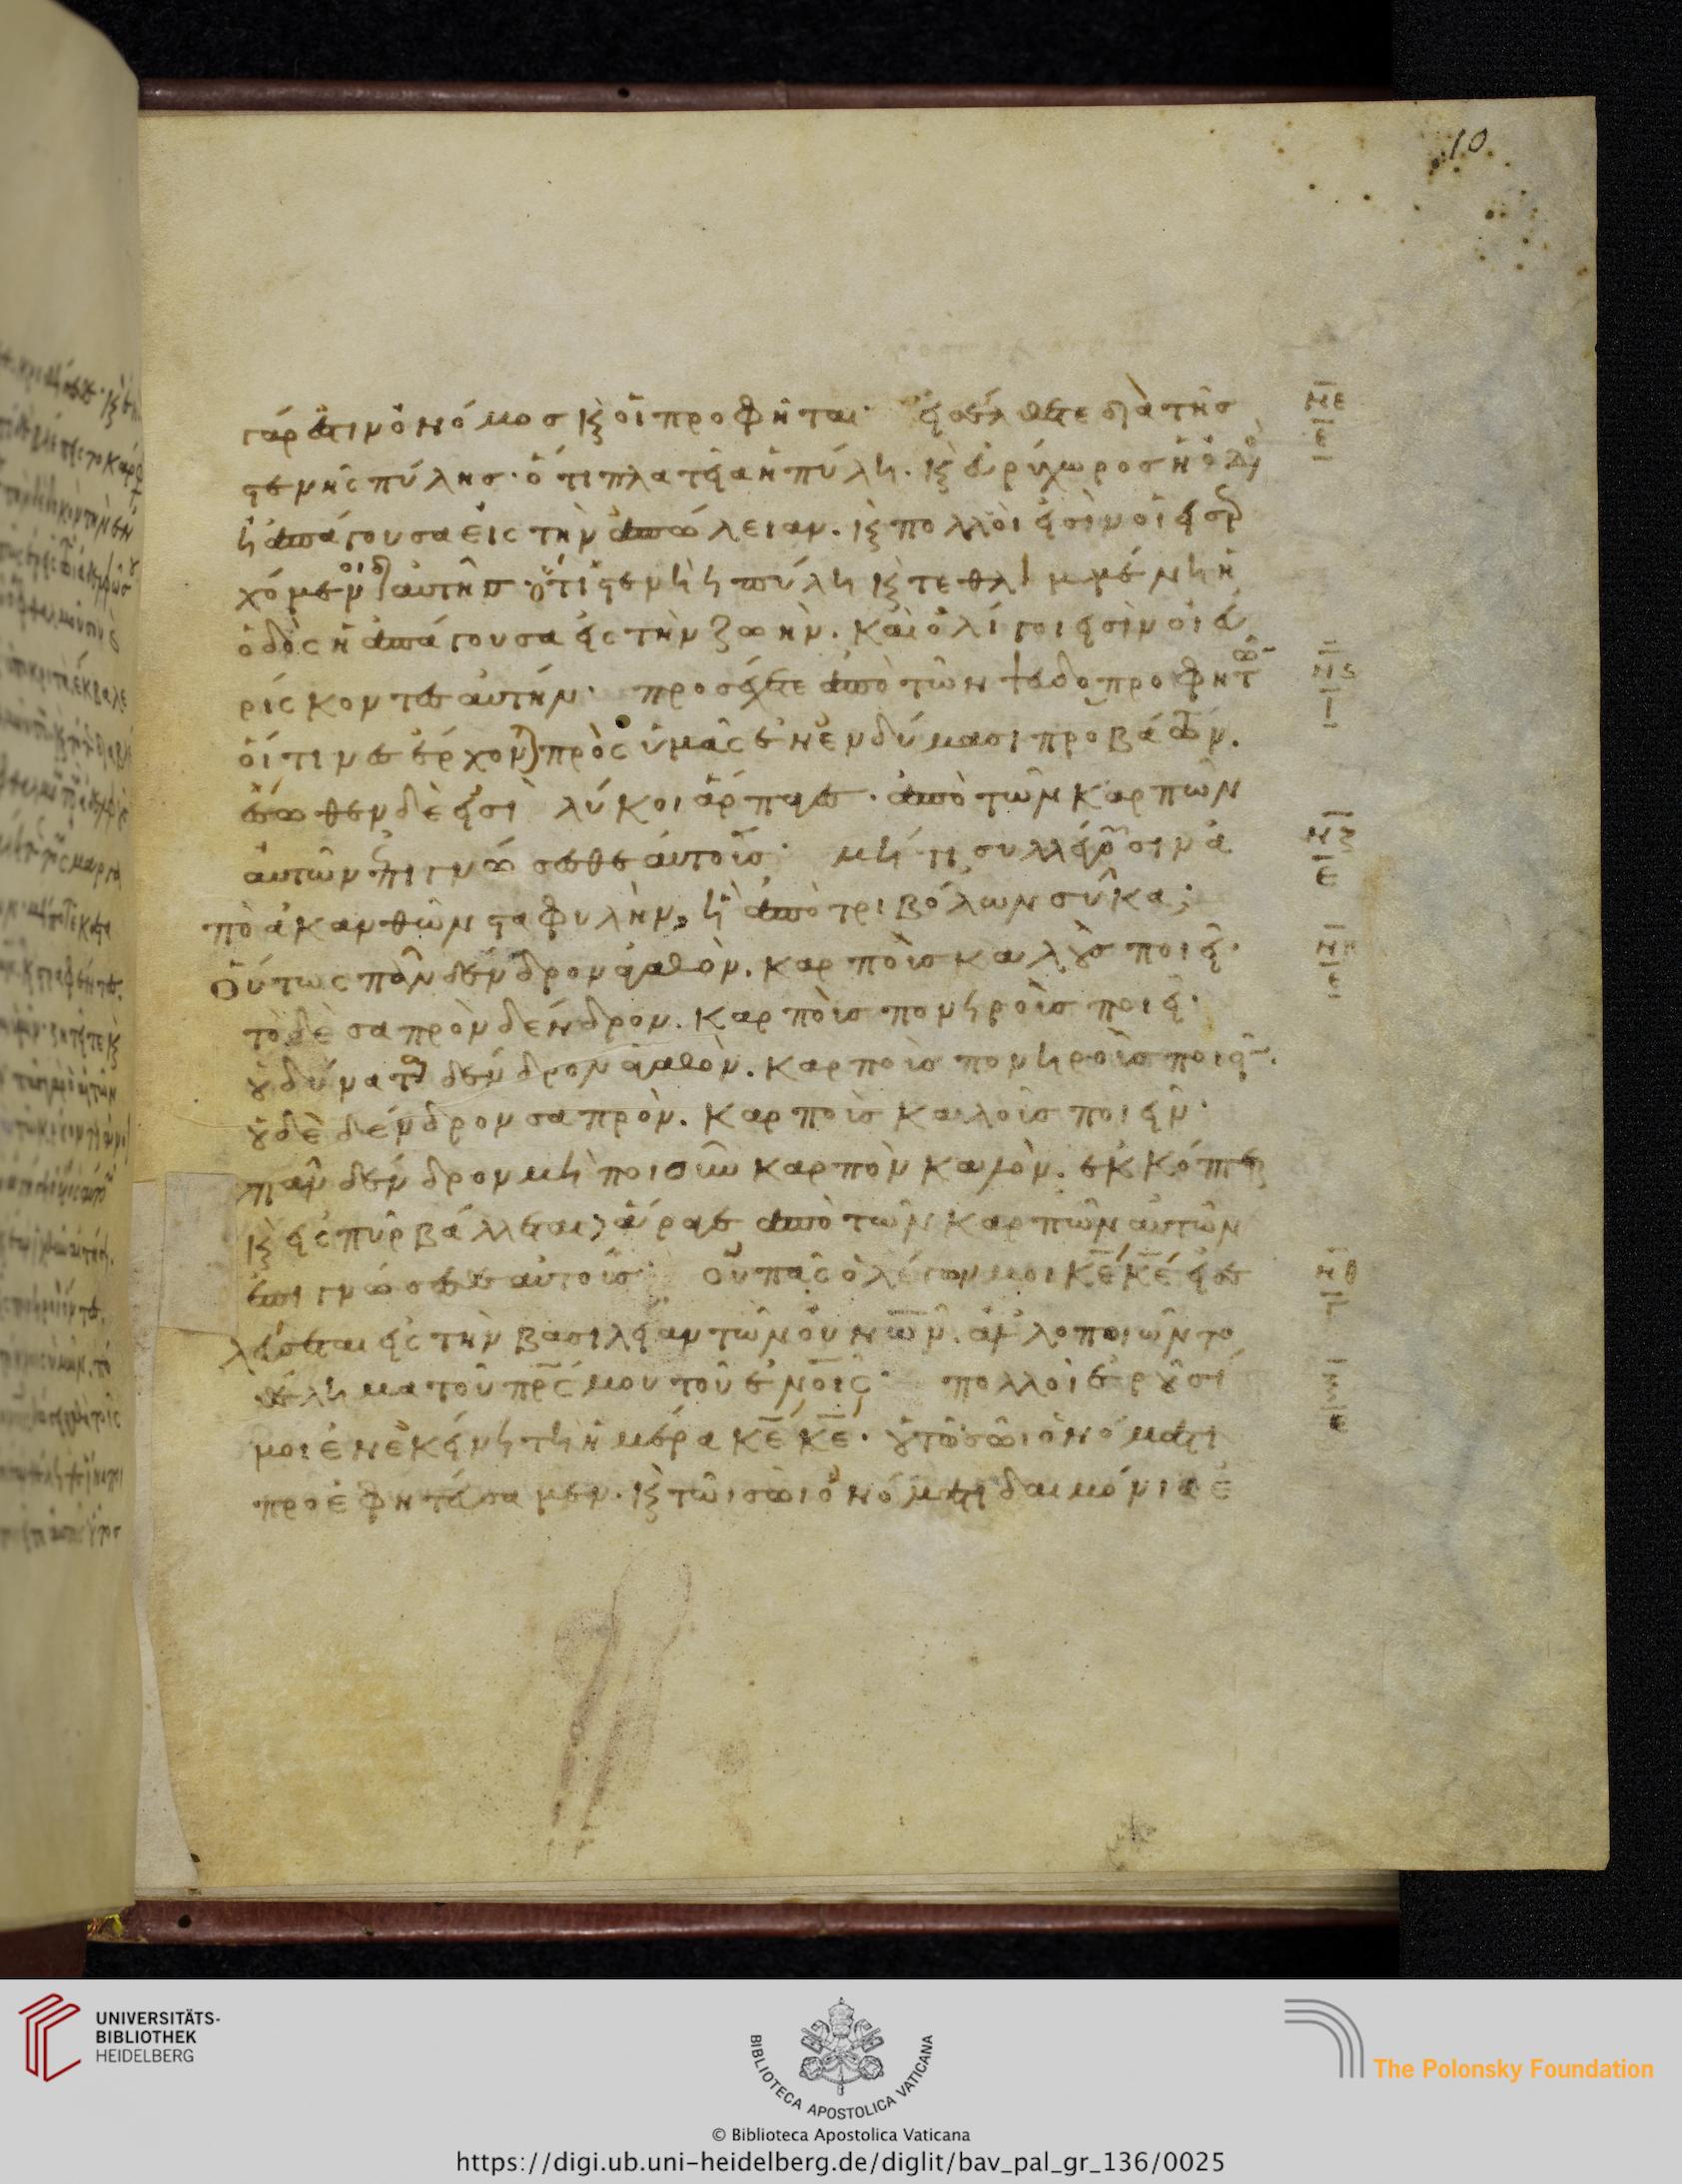 10
γάρ ἐστιν ὁ νόμος κ̀ οἱ προφῆται· εἰσέλθετε διὰ τῆς
στενῆς πύλης· ὅτι πλατεῖα ἡ πύλη. κ̀ εὐρύχωρος ἡ ὁδὸς
ἡ ἀπάγουσα εἰς τὴν ἀπώλειαν. κ̀ πολλοὶ εἰσὶν οἱ εἰσερ
χόμενοι δι αὐτῆς· ὅτι στενὴ ἡ πύλη κ̀ τεθλιμμένη ἡ
ὁδὸς ἡ ἀπάγουσα εἰς τὴν ζωὴν. καὶ ὀλίγοι εἰσὶν οἱ εὑ
ρίσκοντες αὐτήν· προσέχετε ἀπὸ τῶν ψευδοπροφητῶν
οἵτινες ἔρχονται πρὸς ὑμᾶς ἐν ἐνδύμασι προβάτων.
ἔσωθεν δὲ εἰσὶ λύκοι ἅρπαγες. ἀπὸ τῶν καρπῶν
αὐτῶν ἐπιγνώσεσθε αὐτούς· μή τι συλλέγουσιν ἀ
πὸ ἀκανθῶν σταφυλὴν, ἢ ἀπὸ τριβόλων σῦκα;
Οὕτως πᾶν δένδρον ἀγαθὸν. καρποὺς καλοὺς ποιεῖ·
τὸ δὲ σαπρὸν δένδρον. καρποὺς πονηροὺς ποιεῖ·
οὐ δύναται δένδρον ἀγαθὸν. καρποὺς πονηροὺς ποιεῖν.
οὐδὲ δένδρον σαπρὸν. καρποὺς καλοὺς ποιεῖν·
πᾶν δένδρον μὴ ποιοῦν καρπὸν καλὸν. ἐκκόπτεται
κ̀ εἰς πῦρ βάλλεται, ἄραγε ἀπὸ τῶν καρπῶν αὐτῶν
ἐπιγνώσεσθε αὐτούς· οὐ πᾶς ὁ λέγων μοι κ̅ε̅ κ̅ε̅ εἰσε
λεύσεται εἰς τὴν βασιλείαν τῶν οὐνῶν. ἀλλ ὁ ποιῶν τὸ
θέλημα τοῦ πρ̅ς μου τοῦ ἐν οὐνοῖς· πολλοὶ ἐροῦσί
μοι ἐν ἐκείνῃ τῇ ἡμέρα κ̅ε̅ κ̅ε̅· οὐ τῷ σῷ ὀνόματι
προεφητεύσαμεν. κ̀ τῶι σῶι ὀνόματι δαιμόνια ἐ
ΝΕ
Ε
ΝϚ
Ι
ΝΖ
Ε
ΝΗ
Ε
ΝΘ
Γ
Ξ
Ε
UNIVERSITÄTS-
BIBLIOTHEK
HEIDELBERG
BIBLIOTECA APOSTOLICA VATICANA
The Polonsky Foundation
© Biblioteca Apostolica Vaticana
https://digi.ub.uni-heidelberg.de/diglit/bav_pal_gr_136/0025